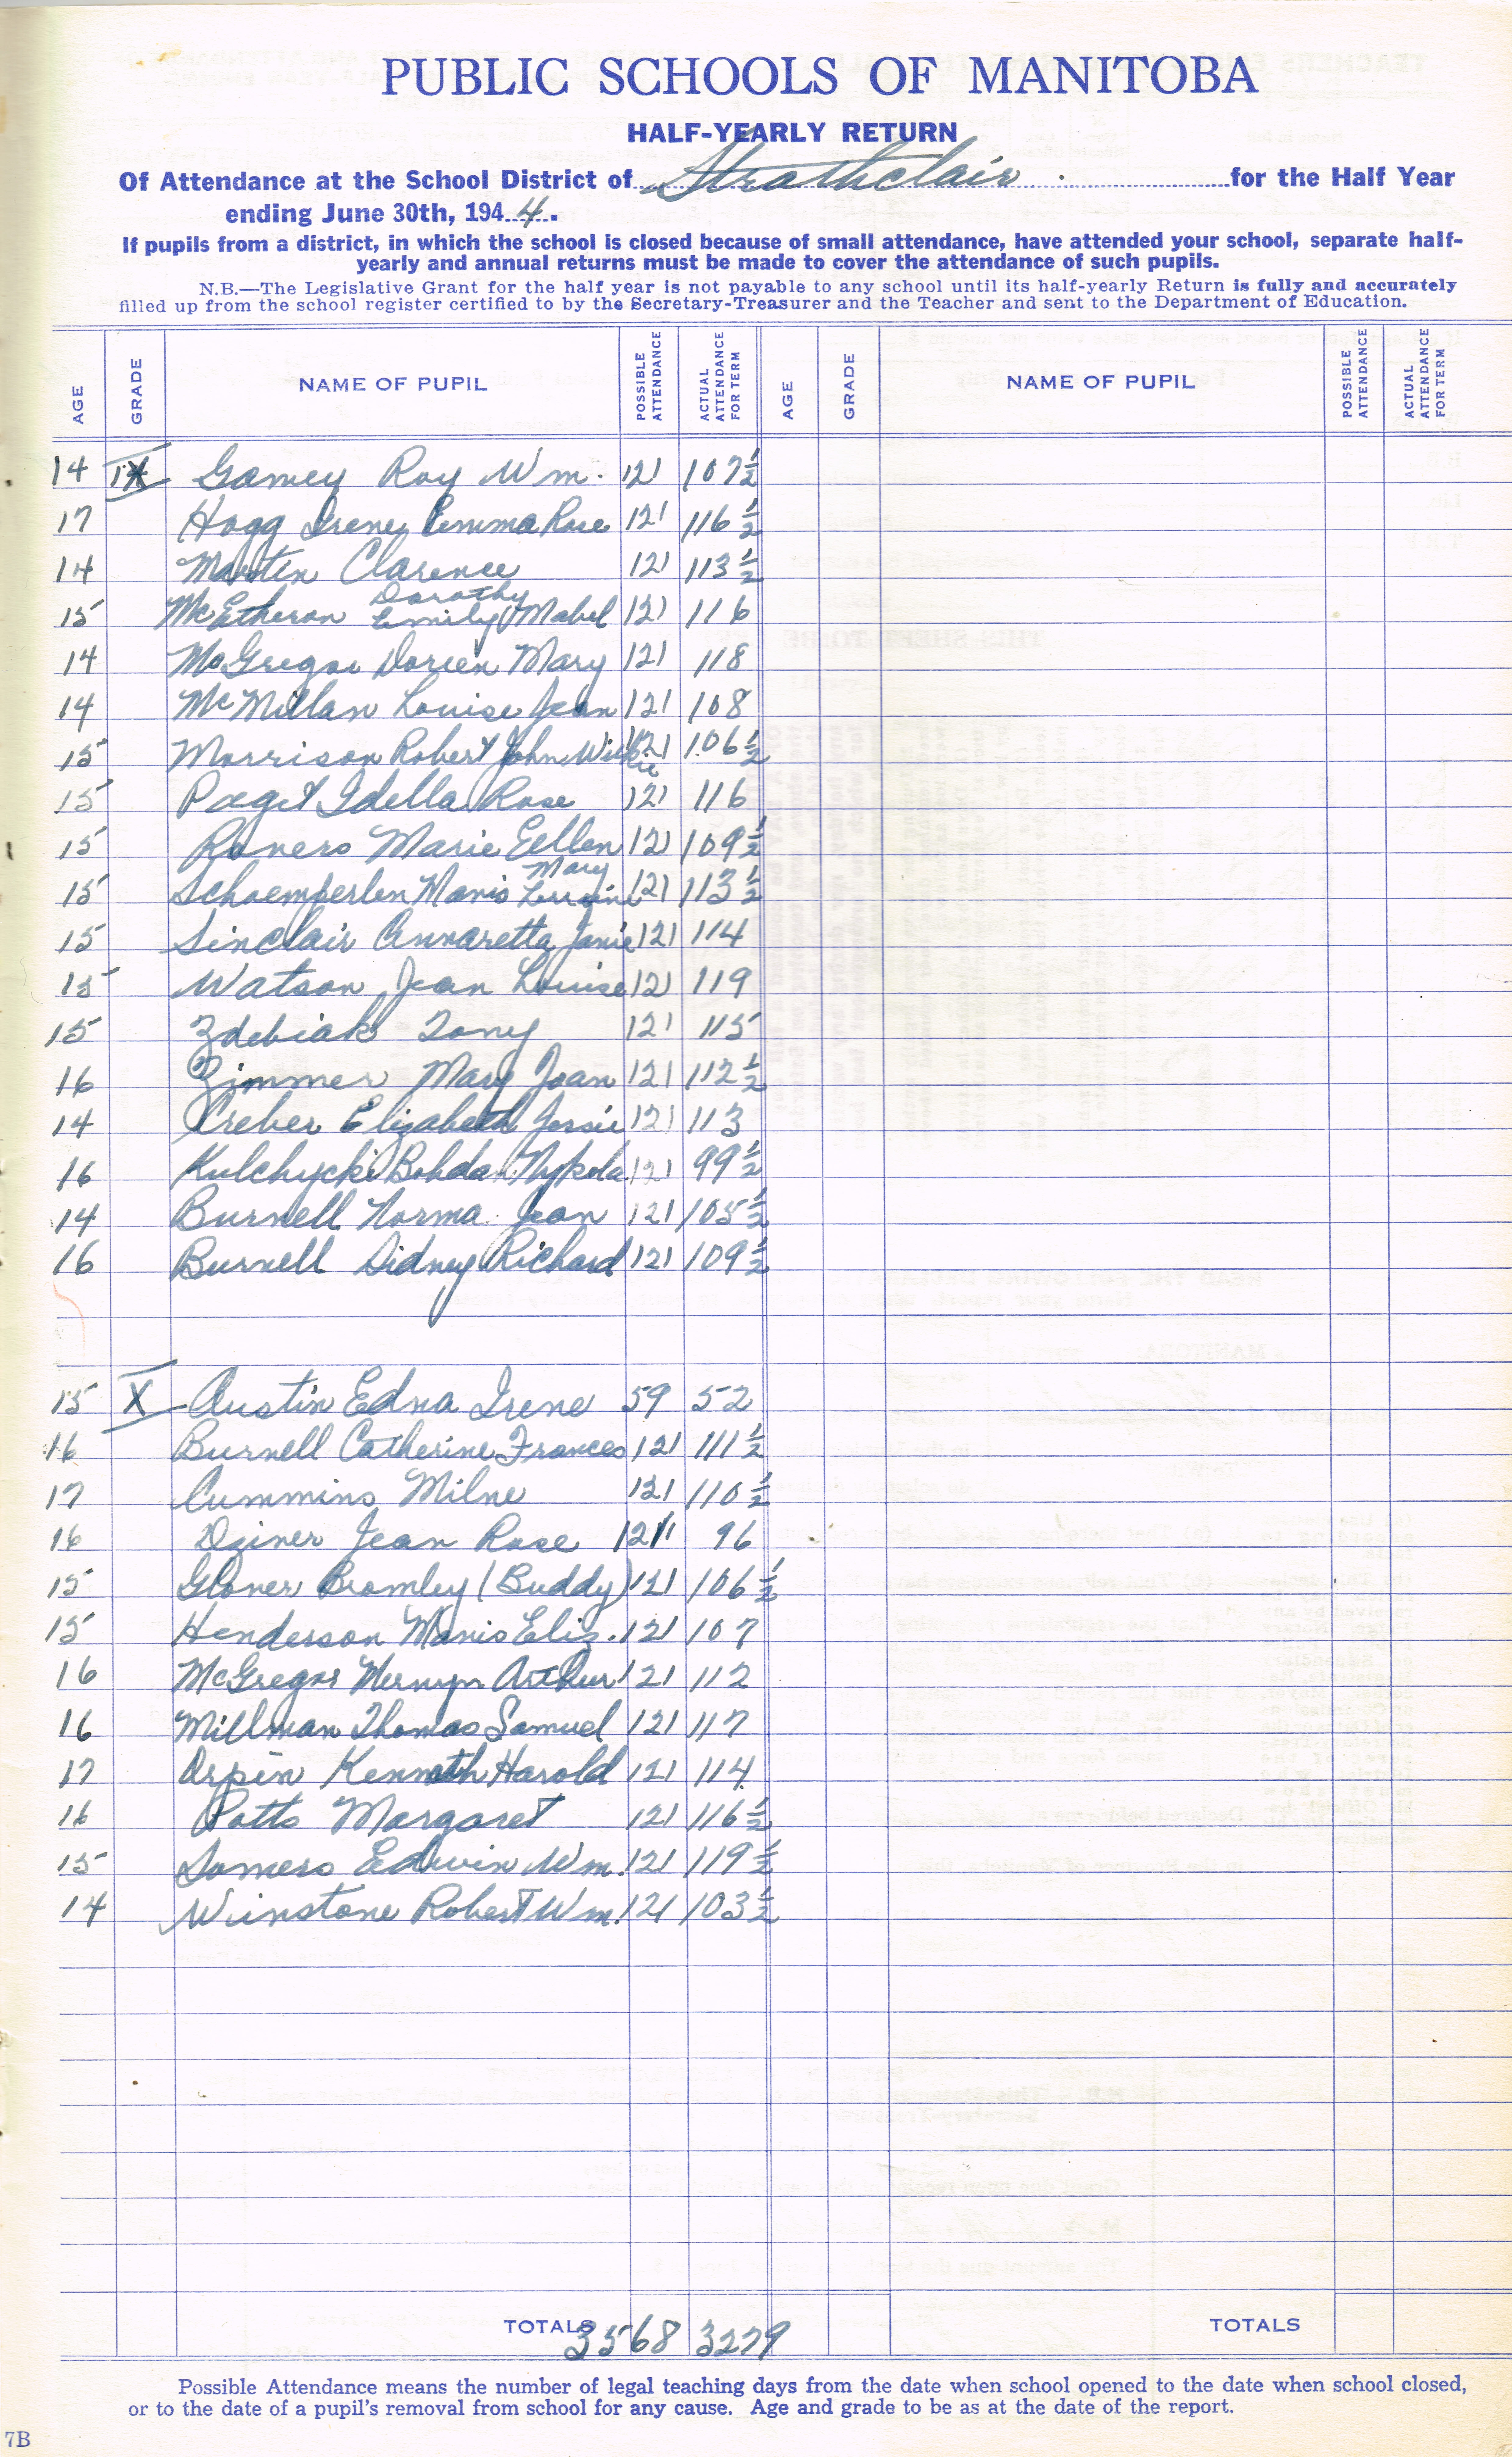 PUBLIC SCHOOLS OF MANITOBA
HALF-YEARLY RETURN
Of Attendance at the School District of Strathclair for the Half Year
ending June 30th, 1944.
If pupils from a district, in which the school is closed because of small attendance, have attended your school, separate half-
yearly and annual returns must be made to cover the attendance of such pupils.
N.B.—The Legislative Grant for the half year is not payable to any school until its half-yearly Return is fully and accurately
filled up from the school register certified to by the Secretary-Treasurer and the Teacher and sent to the Department of Education.
AGE GRADE NAME OF PUPIL POSSIBLE ATTENDANCE ACTUAL ATTENDANCE FOR TERM AGE GRADE NAME OF PUPIL POSSIBLE ATTENDANCE ACTUAL ATTENDANCE FOR TERM
14 IX Gamey Roy Wm. 121 107½
17 Hogg Irene Emma Rose 121 116½
14 Martin Clarence 121 113½
15 Dorothy Emily Mabel 121 116
14 McGregor Doreen Mary 121 118
14 McMillan Louise Jean 121 108
15 Morrison Robert John Wilkie 121 106½
15 Paget Idella Rose 121 116
15 Marie Eellen 121 109½
15 Schoemperlen Mavis Mary Lorraine 121 113½
15 Sinclair Annaretta Janie 121 114
15 Watson Jean Louise 121 119
15 Zdebiak Tony 121 115
16 Zimmer Mary Joan 121 112½
14 Creber Elizabeth Jessie 121 113
16 Kulchycki Bohdan Mykola 121 99½
14 Burnell Norma Jean 121 105½
16 Burnell Sidney Richard 121 109½
15 X Austin Edna Irene 59 52
16 Burnell Catherine Frances 121 111½
17 Cummins Milne 121 110½
16 Jean Rose 121 96
15 Glover Bromley (Buddy) 121 106½
15 Henderson Mavis Eliz. 121 107
16 McGregor Mervyn Arthur 121 112
16 Millman Thomas Samuel 121 117
17 Orpin Kenneth Harold 121 114
16 Potts Margaret 121 116½
15 Somers Edwin Wm. 121 119½
14 Winstone Robert Wm. 121 103½
TOTALS 3568 3279 TOTALS
Possible Attendance means the number of legal teaching days from the date when school opened to the date when school closed,
or to the date of a pupil's removal from school for any cause. Age and grade to be as at the date of the report.
7B